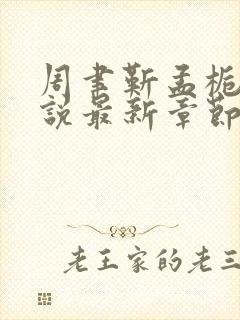 周聿靳孟栀
說最新章節
老王家的老三